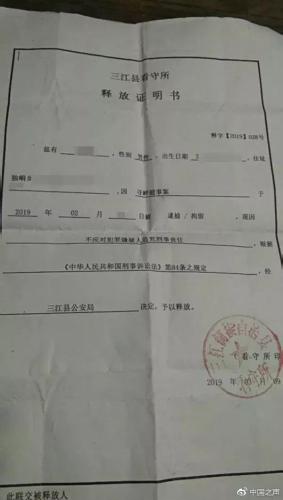 三江县看守所
释放证明书
释字【2019】028号
兹有 性别 男性,出生日期 住址
独峒乡 ,因 寻衅滋事案 于
2019 年 02 月 日被 逮捕/拘留 ,现因
不应对犯罪嫌疑人追究刑事责任 ,根据
《中华人民共和国刑事诉讼法》第84条之规定 ,经
三江县公安局 决定,予以释放。
三江侗族自治县
看守所
看守所印
2019 年 09
此联交被释放人
@中国之声